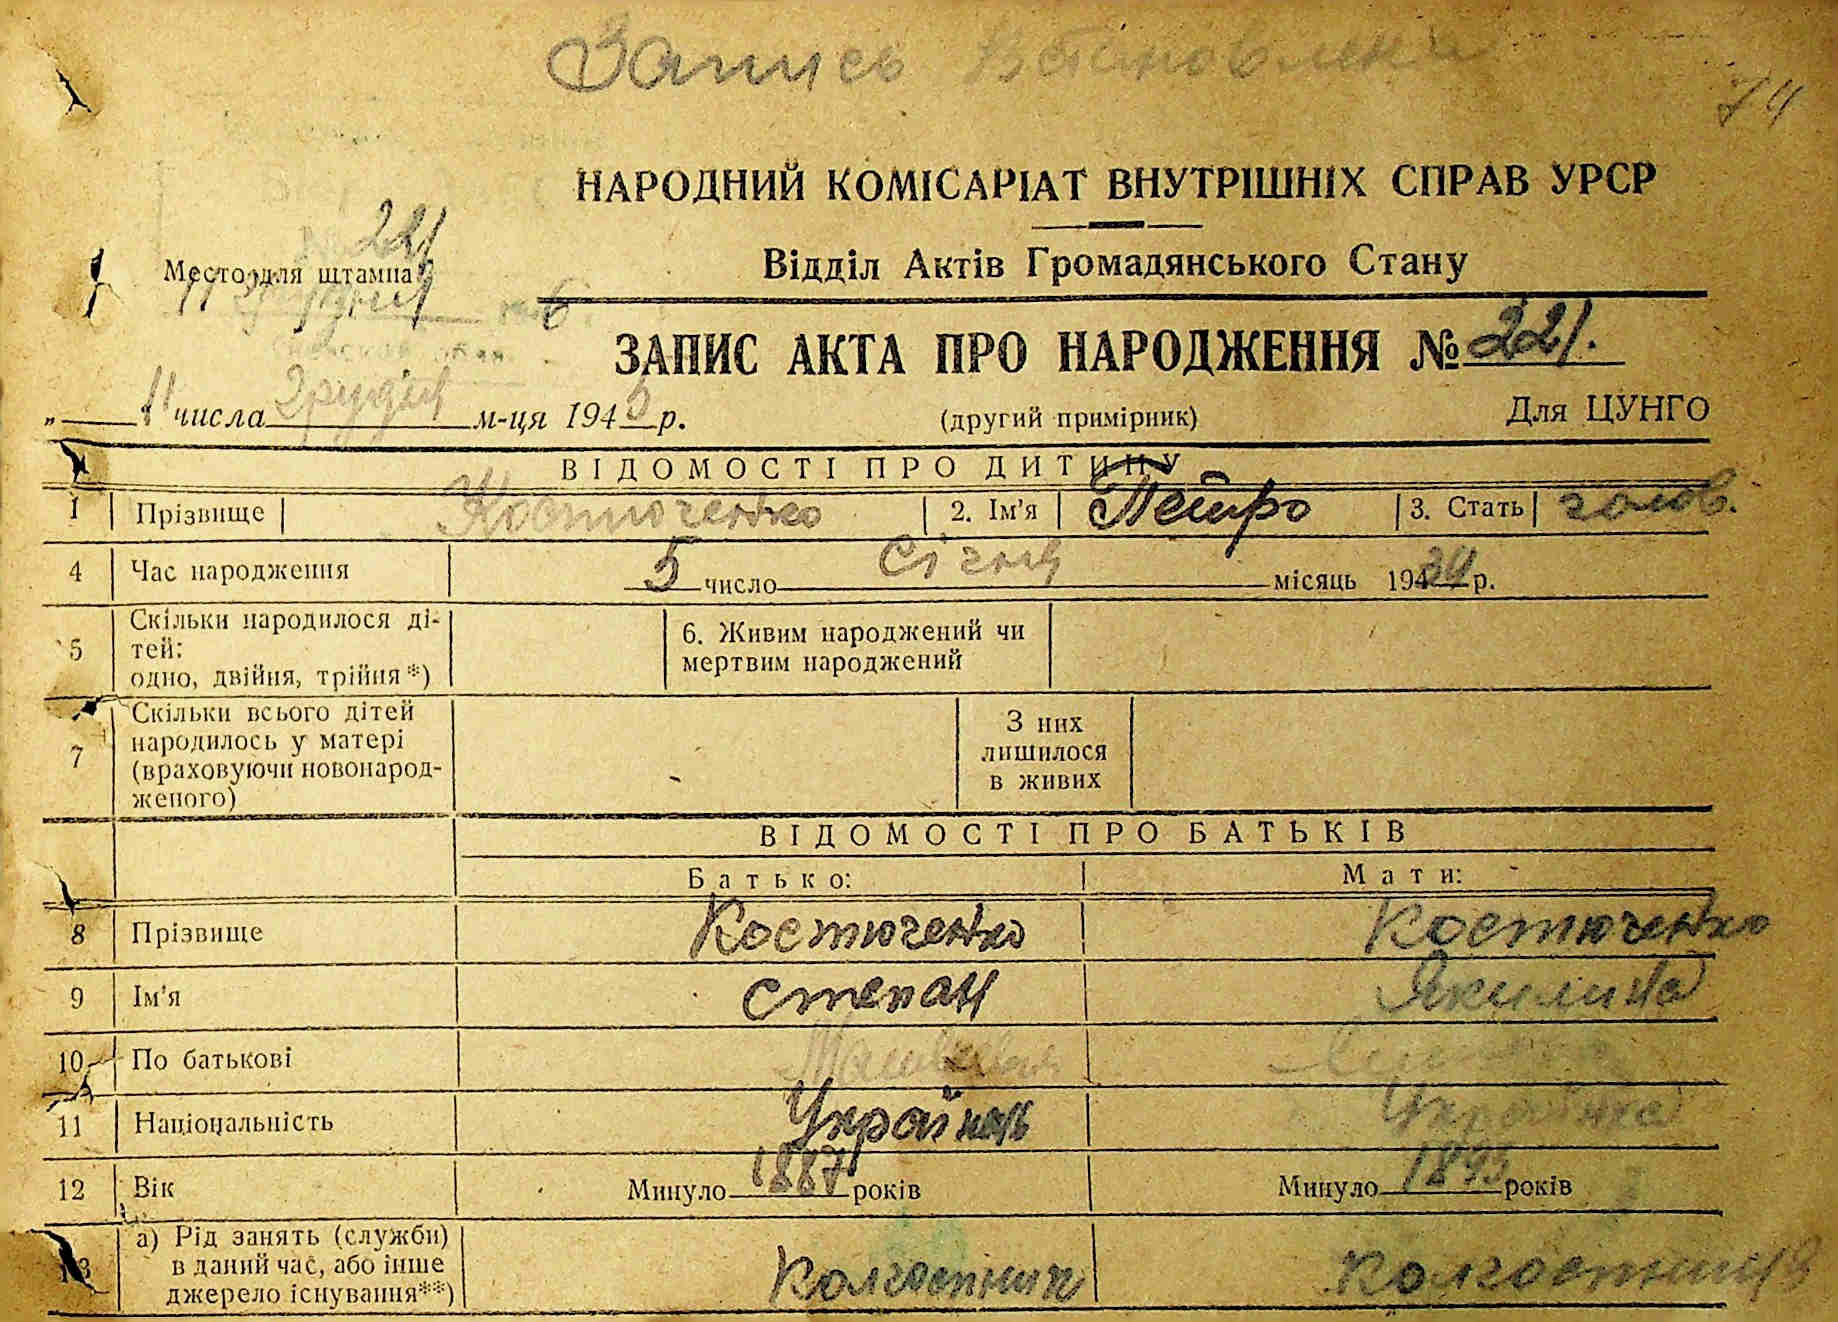 Запись встановлени
74
НАРОДНИЙ КОМІСАРІАТ ВНУТРІШНІХ СПРАВ УРСР
221
Место для штампа
Відділ Актів Громадянського Стану
11 грудня 6
ЗАПИС АКТА ПРО НАРОДЖЕННЯ № 221.
„ 11 числа грудня м-ця 1945 р. (другий примірник) Для ЦУНГО
ВІДОМОСТІ ПРО ДИТИНУ
1 Прізвище Костюченко 2. Ім'я Петро 3. Стать чолов.
4 Час народження 5 число січня місяць 1934 р.
5 Скільки народилося ді-
тей:
одно, двійня, трійня*)
6. Живим народжений чи
мертвим народжений
7 Скільки всього дітей
народилось у матері
(враховуючи новонарод-
женого)
З них
лишилося
в живих
ВІДОМОСТІ ПРО БАТЬКІВ
Батько: Мати:
8 Прізвище Костюченко Костюченко
9 Ім'я Степан Якилина
10 По батькові
11 Національність Українець Українка
12 Вік Минуло 1887 років Минуло 1895 років
13 а) Рід занять (служби)
в даний час, або інше
джерело існування**)
Колгоспник Колгоспниця